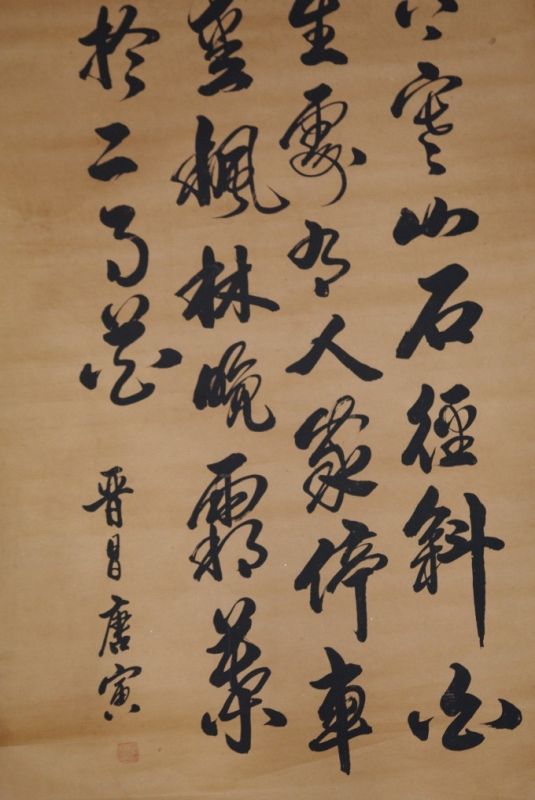 寒山石徑斜白
生處有人家停車
愛楓林晚霜葉
於二月花
晉昌唐寅